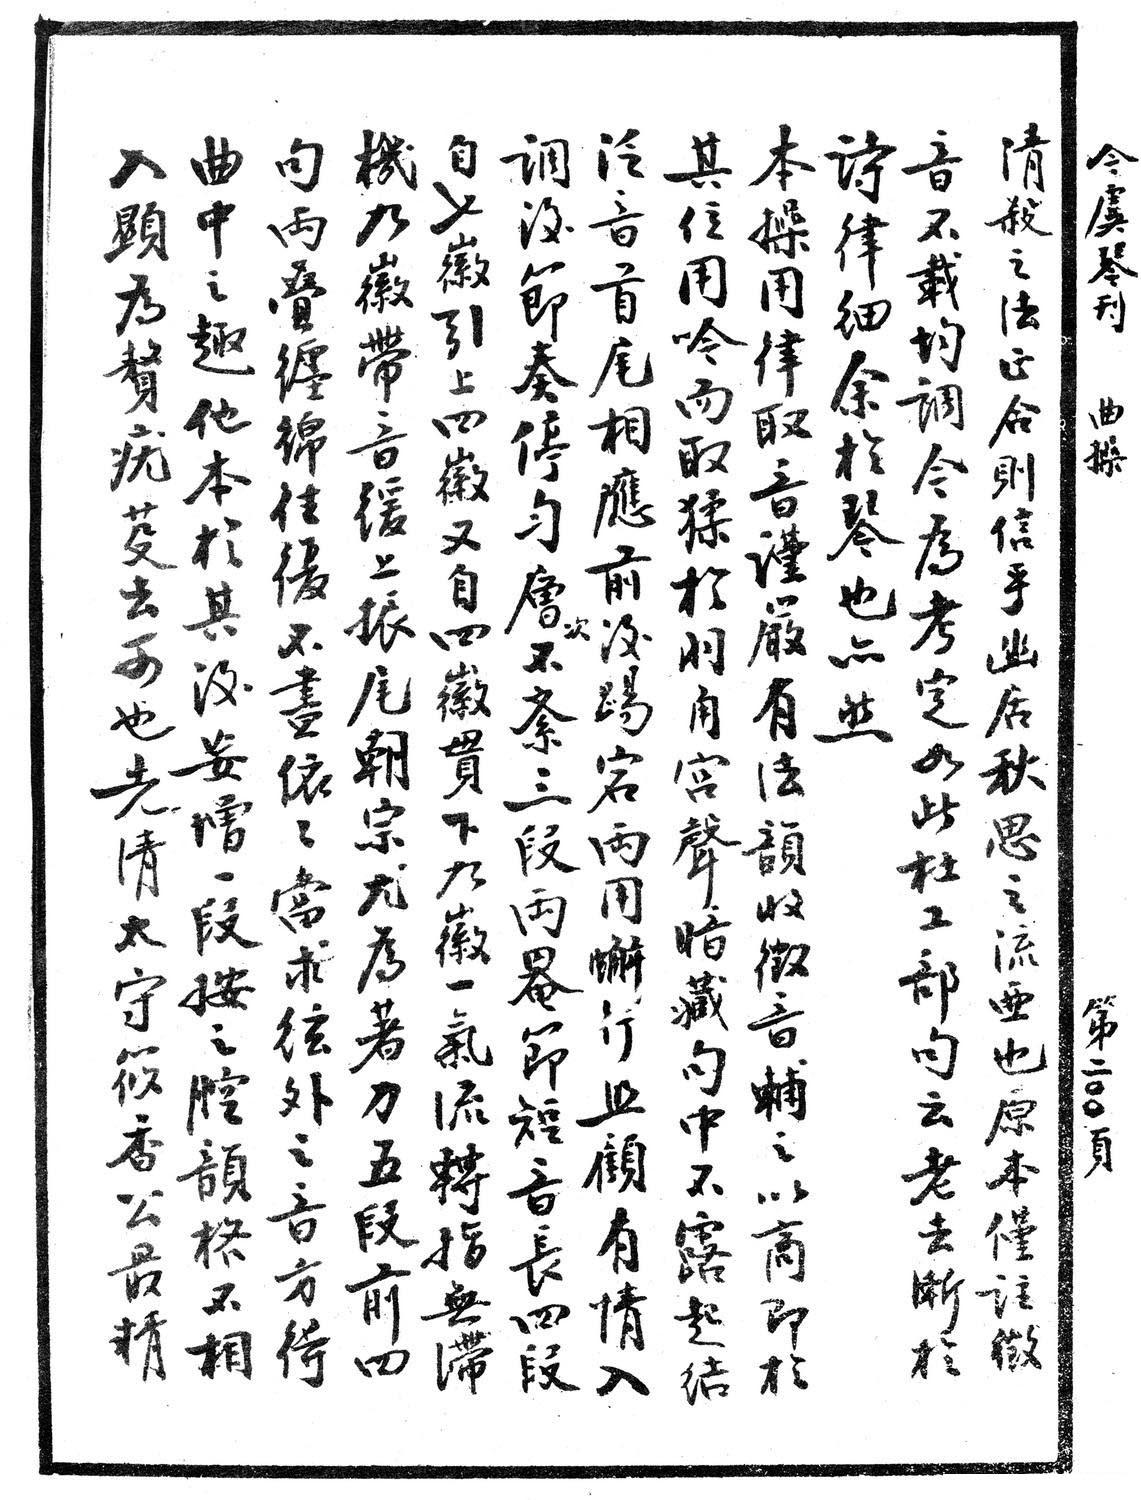 今虞琴刊　曲操　第二〇〇頁
清殺之法正合則信乎幽居秋思之流亜也原本僅註徵
音不載均調今為考定如此杜工部句云老去漸於
詩律細余於琴也亦然
本操用律取音謹嚴有法韻收徵音輔之以商即於
其位用吟而取猱於羽角宮聲暗藏句中不露起結
泛音首尾相應前後蹋宕兩用蠏行且顧有情入
調後節奏停勻層次不紊三段兩罨節短音長四段
自七徽引上四徽又自四徽貫下九徽一氣流轉指無滯
機九徽帶音緩上振尾朝宗尤為著力五段前四
句兩疊纏綿往復不盡依々當求弦外之音方得
曲中之趣他本於其後妄增一段按之腔韻格不相
入顯為贅疣芟去可也先清太守筱香公最精